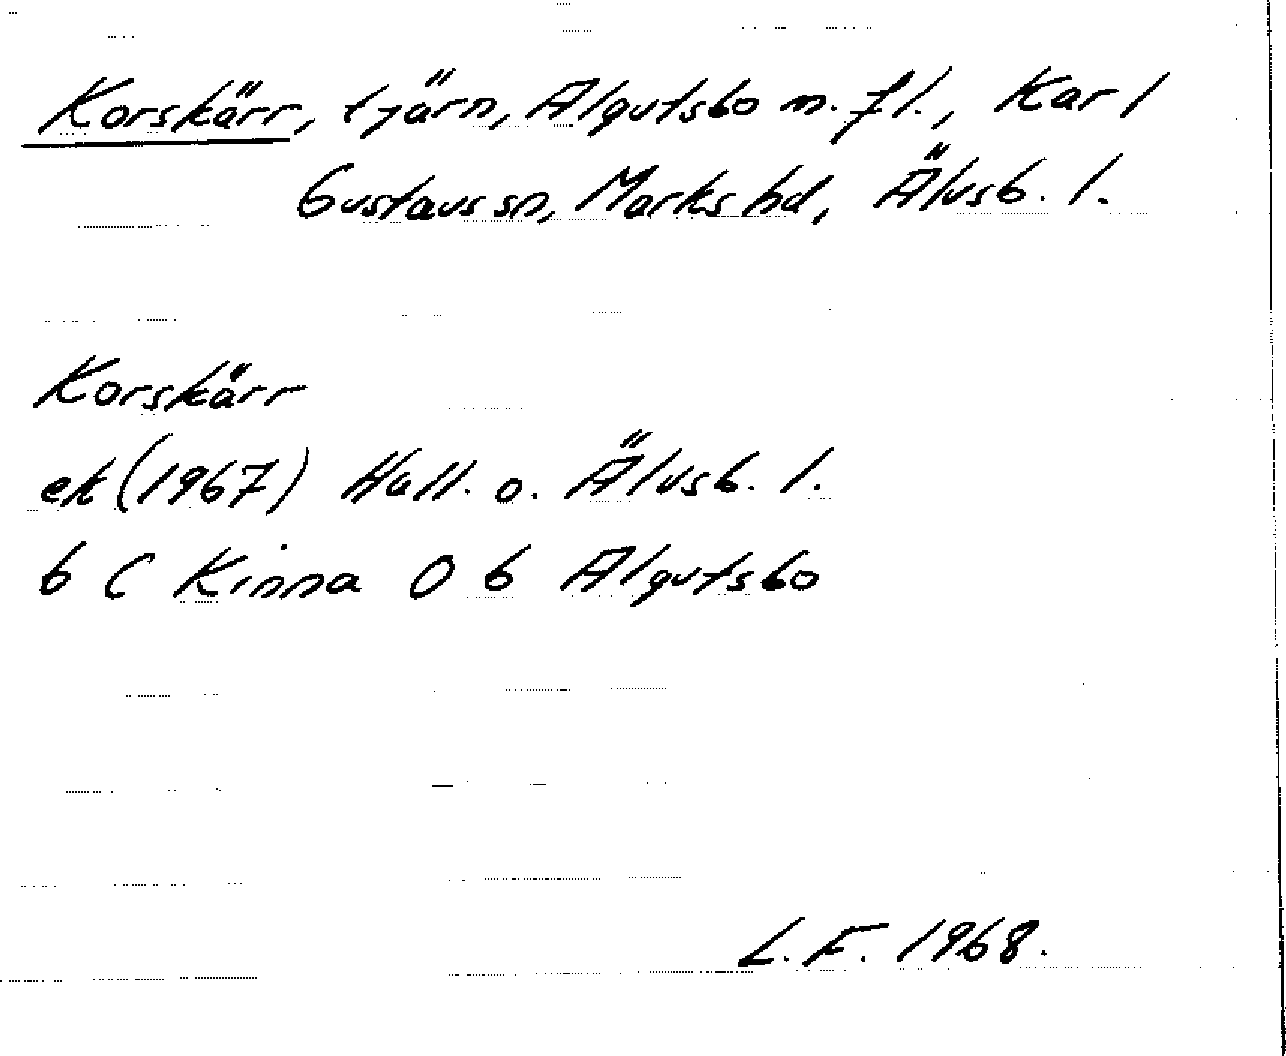 Korskärr, tjärn, Algutsbo m. fl., Karl
Gustavs sn, Marks hd, Älvsb. l.
Korskärr
ek (1967) Hall. o. Älvsb. l.
6 C Kinna 0 6 Algutsbo
L. F. 1968.